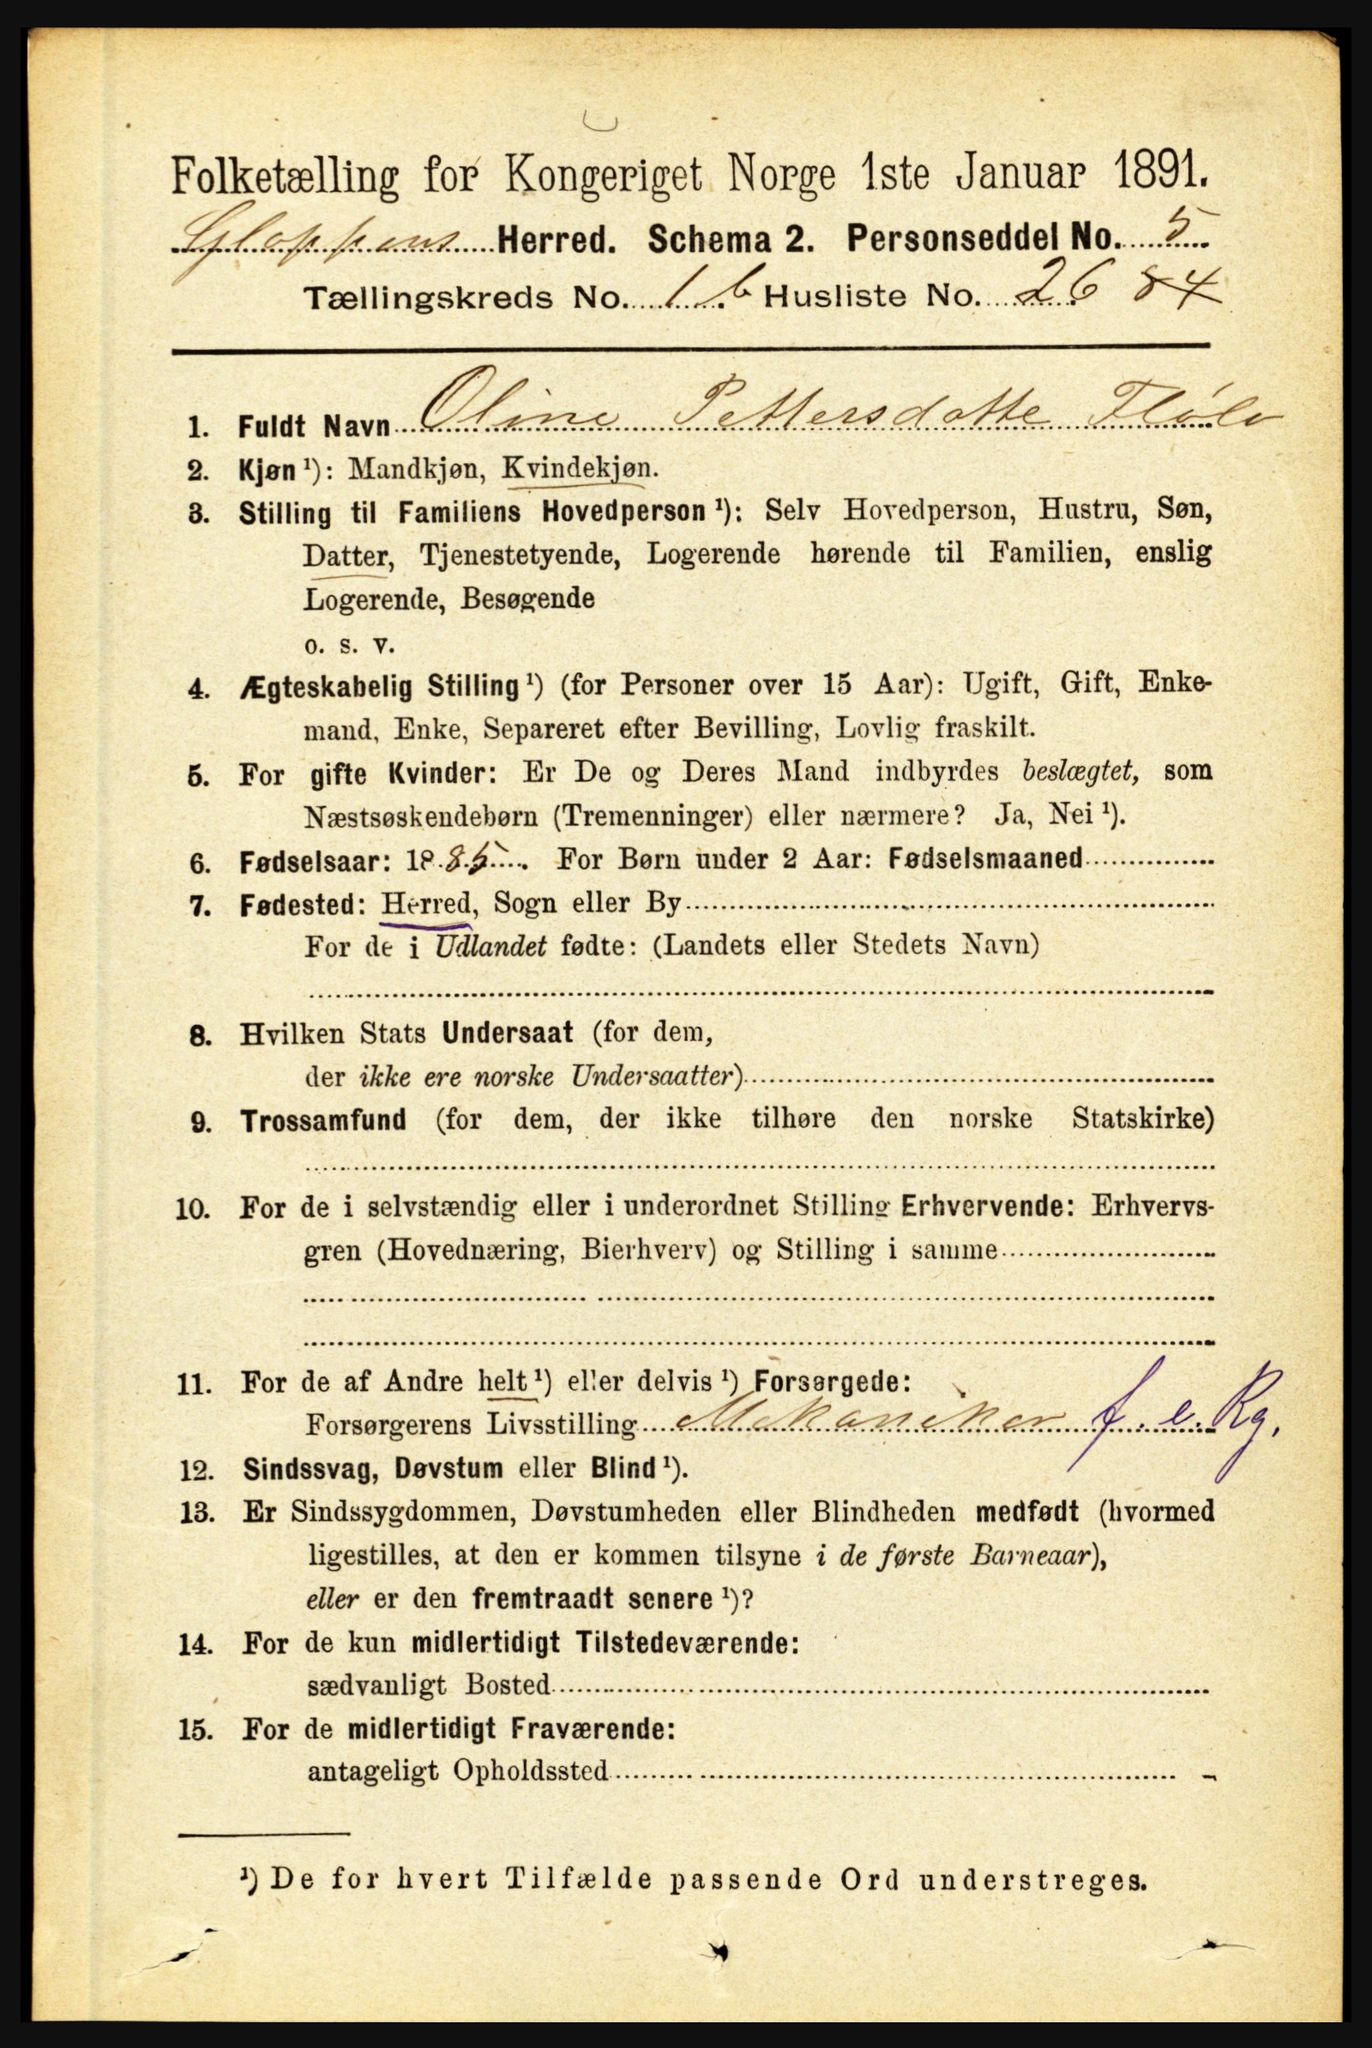 Folketælling for Kongeriget Norge 1ste Januar 1891.
Gloppens Herred. Schema 2. Personseddel No. 5
Tællingskreds No. 1 b Husliste No. 26 84
1. Fuldt Navn Oline Pettersdotte Flølo
2. Kjøn ¹): Mandkjøn, Kvindekjøn.
3. Stilling til Familiens Hovedperson ¹): Selv Hovedperson, Hustru, Søn,
Datter, Tjenestetyende, Logerende hørende til Familien, enslig
Logerende, Besøgende
o. s. v.
4. Ægteskabelig Stilling ¹) (for Personer over 15 Aar): Ugift, Gift, Enke-
mand, Enke, Separeret efter Bevilling, Lovlig fraskilt.
5. For gifte Kvinder: Er De og Deres Mand indbyrdes beslægtet, som
Næstsøskendebørn (Tremenninger) eller nærmere? Ja, Nei ¹).
6. Fødselsaar: 1885. For Børn under 2 Aar: Fødselsmaaned
7. Fødested: Herred, Sogn eller By
For de i Udlandet fødte: (Landets eller Stedets Navn)
8. Hvilken Stats Undersaat (for dem,
der ikke ere norske Undersaatter)
9. Trossamfund (for dem, der ikke tilhøre den norske Statskirke)
10. For de i selvstændig eller i underordnet Stilling Erhvervende: Erhvervs-
gren (Hovednæring, Bierhverv) og Stilling i samme
11. For de af Andre helt ¹) eller delvis ¹) Forsørgede:
Forsørgerens Livsstilling Mekaniker f. e. Rg.
12. Sindssvag, Døvstum eller Blind ¹).
13. Er Sindssygdommen, Døvstumheden eller Blindheden medfødt (hvormed
ligestilles, at den er kommen tilsyne i de første Barneaar),
eller er den fremtraadt senere ¹)?
14. For de kun midlertidigt Tilstedeværende:
sædvanligt Bosted
15. For de midlertidigt Fraværende:
antageligt Opholdssted
¹) De for hvert Tilfælde passende Ord understreges.